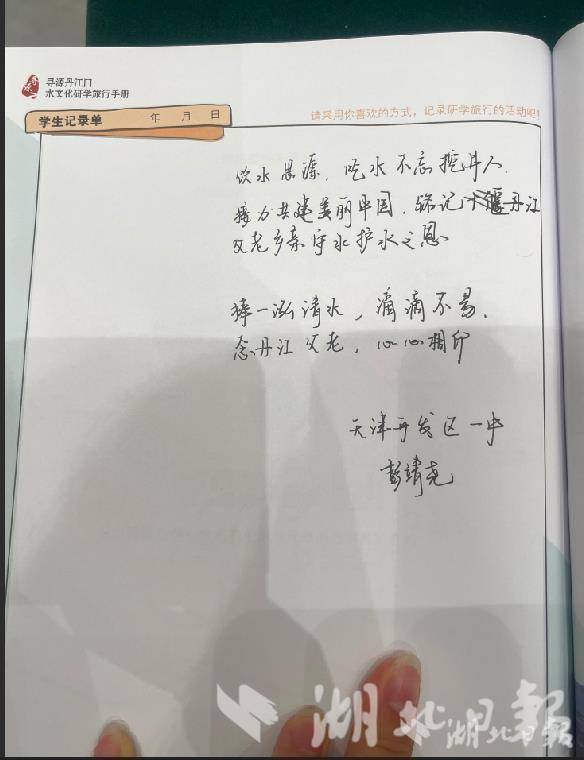 寻源丹江口
水文化研学旅行手册
学生记录单 年 月 日
请采用你喜欢的方式，记录研学旅行的活动吧！
饮水思源，吃水不忘挖井人，
接力共建美丽中国，铭记十堰丹江
父老乡亲守水护水之恩
捧一泓清水，滴滴不易，
念丹江父老，心心相印
天津开发区一中
彭靖尧
湖北日报
湖北日报